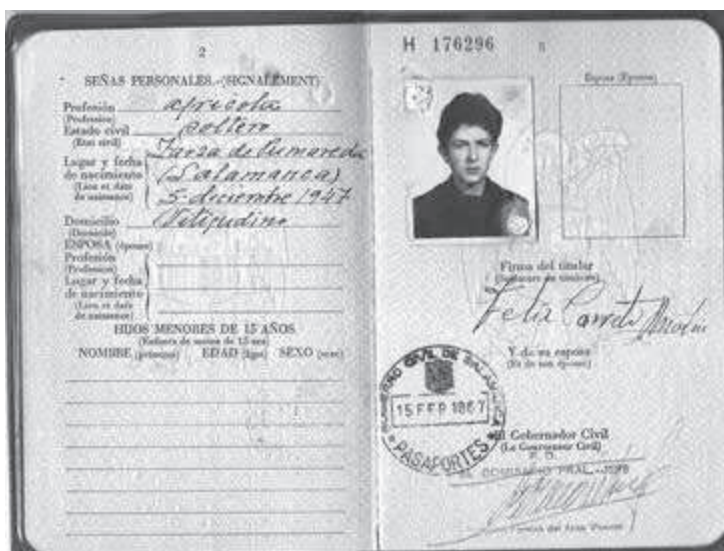 2
SEÑAS PERSONALES.-(SIGNALEMENT)
Profesión agrícola
(Profession)
Estado civil soltero
(Etat civil)
Zarza de Pumareda
Lugar y fecha
de nacimiento (Salamanca)
(Lieu et date
de naissance) 5-diciembre 1947
Domicilio (Vitigudino
(Domicile)
ESPOSA (épouse)
Profesión
(Profession)
Lugar y fecha
de nacimiento
(Lieu et date
de naissance)
HIJOS MENORES DE 15 AÑOS
(Enfants de moins de 15 ans)
NOMBRE (prénoms) EDAD (âge) SEXO (sexe)
H 176296
Esposa (Épouse)
Firma del titular
(Signature du titulaire)
Felix
Y de su esposa
(Et de son épouse)
GOBIERNO CIVIL DE SALAMANCA
15 FEB 1967
PASAPORTES
El Gobernador Civil
(Le Gouverneur Civil)
P. D.
EL COMISARIO PRAL.-JEFE